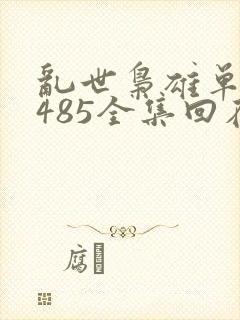 乱世枭雄单
485全集回
腐